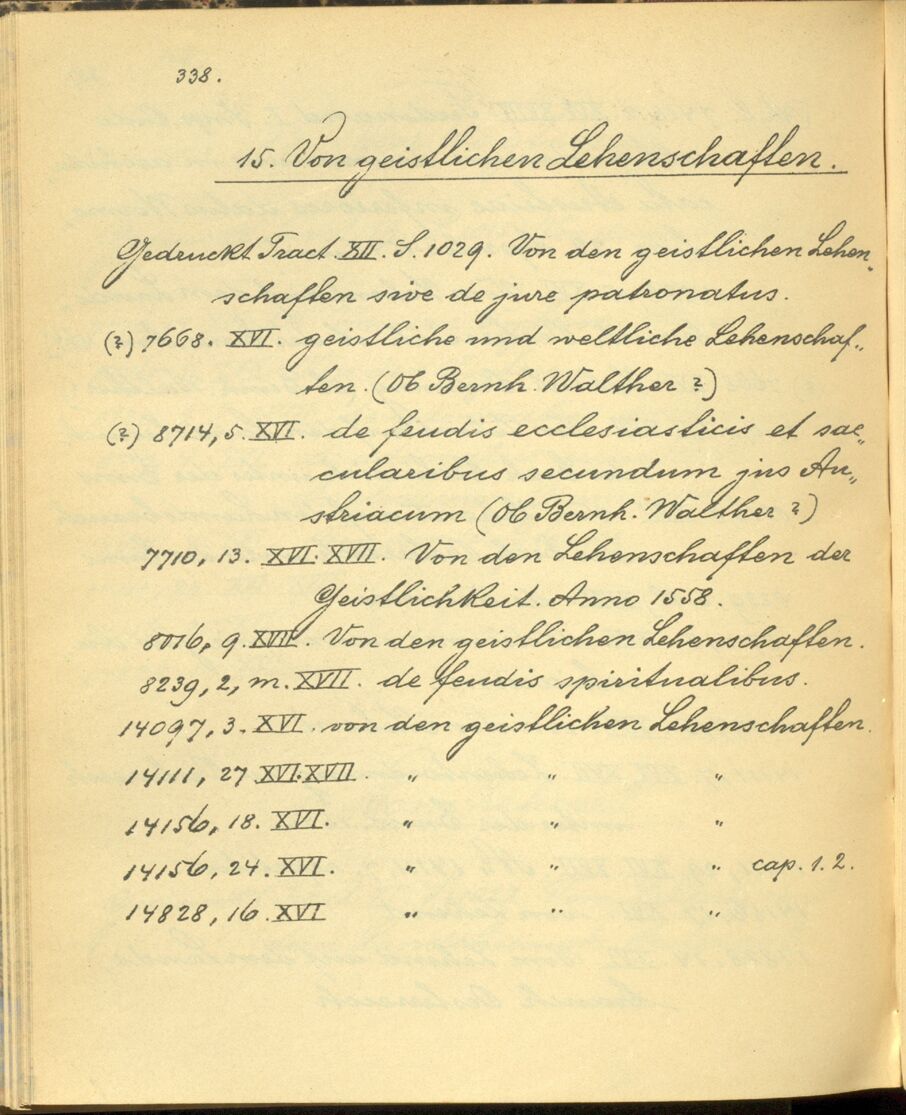 338.
15. Von geistlichen Lehenschaften.
Gedruckt Tract. XII. S. 1029. Von den geistlichen Lehen„
schaften sive de jure patronatus.
(?) 7668. XVI. geistliche und weltliche Lehenschaf„
ten. (Ob Bernh. Walther?)
(?) 8714, 5. XVI. de feudis ecclesiasticis et sae„
cularibus secundum jus Au„
striacum (Ob Bernh. Walther?)
7710, 13. XVI. XVII. Von den Lehenschaften der
Geistlichkeit. Anno 1558.
8016, 9. XVII. Von den geistlichen Lehenschaften.
8239, 2, m. XVII. de feudis spiritualibus.
14097, 3. XVI. von den geistlichen Lehenschaften.
14111, 27. XVI. XVII „ „ „
14156, 18. XVI. „ „ „
14156, 24. XVI. „ „ „ cap. 1. 2.
14828, 16. XVI „ „ „